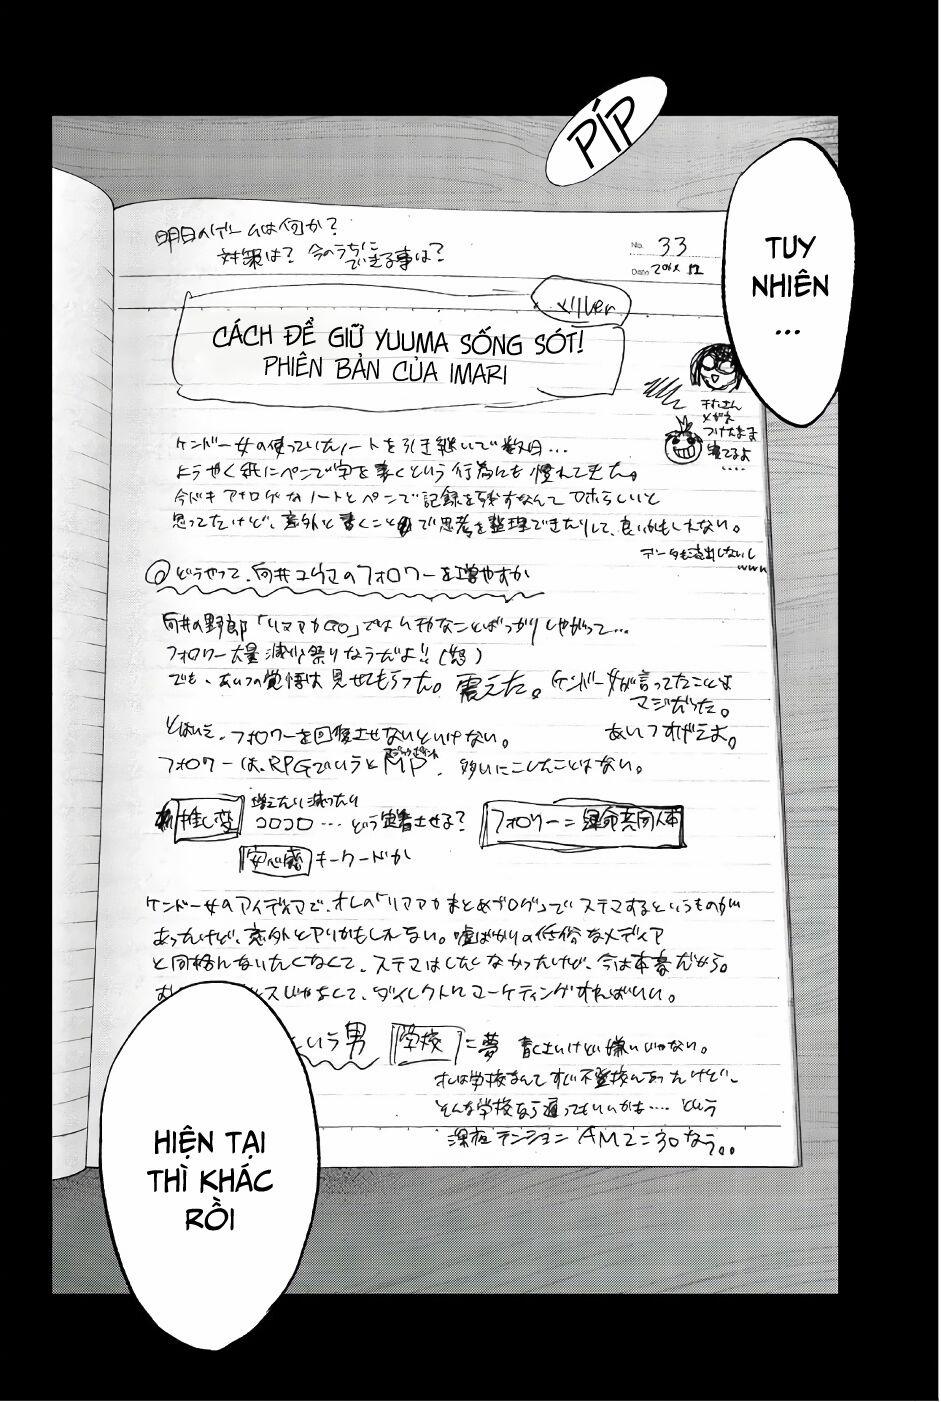 PÍP
TUY
NHIÊN
...
明日のゲームは何か？
対策は？ 今のうちに
できる事は？
No. 33
Date
×111er
CÁCH ĐỂ GIỮ YUUMA SỐNG SÓT!
PHIÊN BẢN CỦA IMARI
メガネ
つけたまま
寝てるよ
....
ケンドー女の使っていたノートを引き継いで数日...
ようやく紙にペンで字を書くという行為にも慣れてきた。
今どきアナログなノートとペンで記録を残すなんてアホらしいと
思ってたけど、意外と書くことで思考を整理できたりして、良いかもしれない。
データも流出しないし
www
◎どうやって、向井ユウマのフォロワーを増やすか
向井の野郎「リアアカGO」では
なことばっかりしやがって...
フォロワー大量減少祭りなうだよ!!(怒)
でも、あいつの覚悟は見せてもらった。震えた。ケンドー女が言ってたことは
マジだった。
あいつすげぇよ。
とはいえ、フォロワーを回復させないといけない。
フォロワーは、RPGでいうとMP。多いにこしたことはない。
推し変
増えたり減ったり
コロコロ...どう定着させる？
フォロワー＝運命共同体
安心感 キーワードか
ケンドー女のアイディアで、オレの「リアアカまとめブログ」でステマするというものが
あったけど、意外とアリかもしれない。嘘ばかりの低俗なメディア
と同格になりたくなくて、ステマはしたくなかったけど、今は本音だから。
じゃなくて、ダイレクトにマーケティングすればいい。
という男 学校に夢 青くさいけど嫌いじゃない。
オレは学校なんてすぐ不登校になったけど、
そんな学校なら通ってもいいかも.... という
深夜テンション AM2:30なう。。
HIỆN TẠI
THÌ KHÁC
RỒI